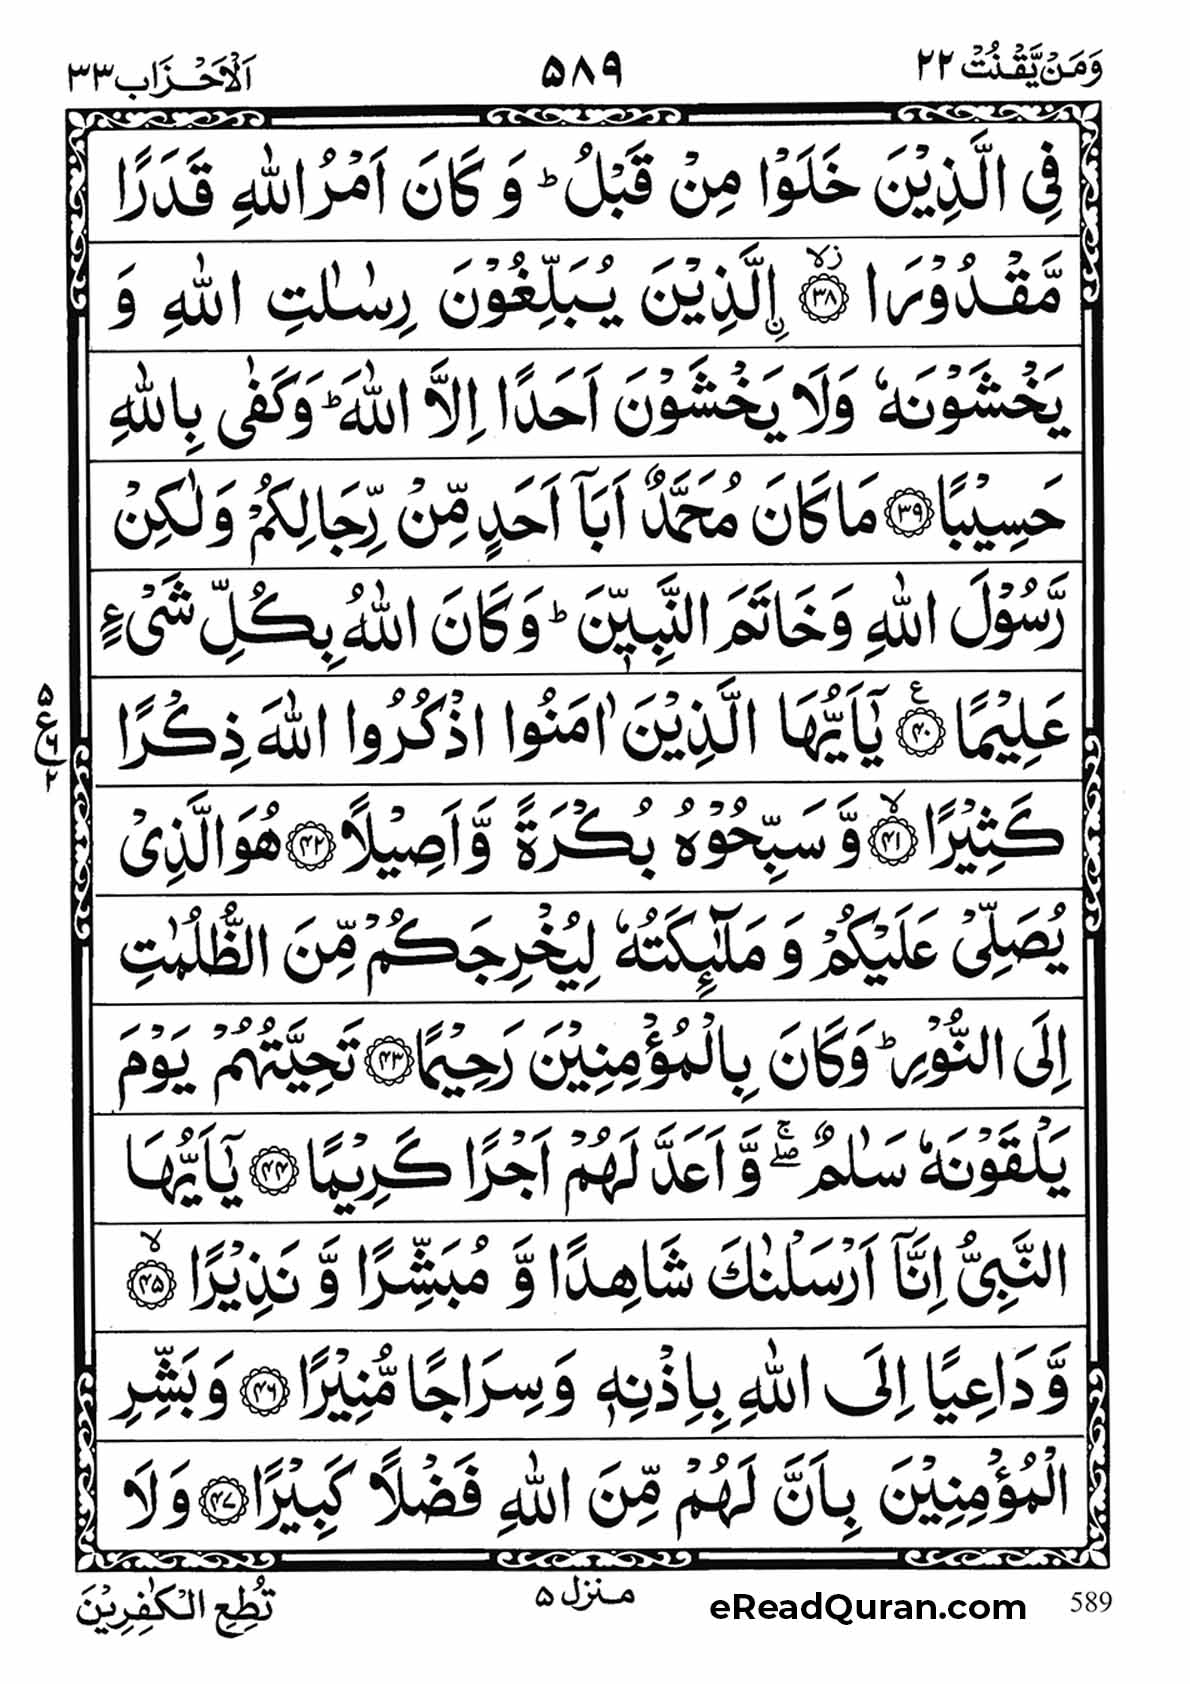 وَمَنْ يَّقْنُتْ ٢٢
٥٨٩
اَلْاَحْزَاب ٣٣
فِی الَّذِیْنَ خَلَوْا مِنْ قَبْلُ ؕ وَ كَانَ اَمْرُ اللّٰهِ قَدَرًا
مَّقْدُوْرَا ۟ۙ﴿۳۸﴾ ز لا اِ۟لَّذِیْنَ یُبَلِّغُوْنَ رِسٰلٰتِ اللّٰهِ وَ
یَخْشَوْنَهٗ وَلَا یَخْشَوْنَ اَحَدًا اِلَّا اللّٰهَ ؕ وَكَفٰی بِاللّٰهِ
حَسِیْبًا ﴿۳۹﴾ مَا كَانَ مُحَمَّدٌ اَبَاۤ اَحَدٍ مِّنْ رِّجَالِكُمْ وَلٰكِنْ
رَّسُوْلَ اللّٰهِ وَخَاتَمَ النَّبِیّٖنَ ؕ وَكَانَ اللّٰهُ بِكُلِّ شَیْءٍ
عَلِیْمًا ﴿۴۰﴾ ع یٰۤاَیُّهَا الَّذِیْنَ اٰمَنُوا اذْكُرُوا اللّٰهَ ذِكْرًا
٥ ع ٦ ٢
كَثِیْرًا ﴿۴۱﴾ ۙ وَّ سَبِّحُوْهُ بُكْرَةً وَّ اَصِیْلًا ﴿۴۲﴾ هُوَ الَّذِیْ
یُصَلِّیْ عَلَیْكُمْ وَ مَلٰٓىِٕكَتُهٗ لِیُخْرِجَكُمْ مِّنَ الظُّلُمٰتِ
اِلَی النُّوْرِ ؕ وَكَانَ بِالْمُؤْمِنِیْنَ رَحِیْمًا ﴿۴۳﴾ تَحِیَّتُهُمْ یَوْمَ
یَلْقَوْنَهٗ سَلٰمٌ ۖۚ وَّ اَعَدَّ لَهُمْ اَجْرًا كَرِیْمًا ﴿۴۴﴾ یٰۤاَیُّهَا
النَّبِیُّ اِنَّاۤ اَرْسَلْنٰكَ شَاهِدًا وَّ مُبَشِّرًا وَّ نَذِیْرًا ﴿۴۵﴾ ۙ
وَّ دَاعِیًا اِلَی اللّٰهِ بِاِذْنِهٖ وَسِرَاجًا مُّنِیْرًا ﴿۴۶﴾ وَبَشِّرِ
الْمُؤْمِنِیْنَ بِاَنَّ لَهُمْ مِّنَ اللّٰهِ فَضْلًا كَبِیْرًا ﴿۴۷﴾ وَلَا
تُطِعِ الْكٰفِرِیْنَ
منزل ٥
eReadQuran.com
589